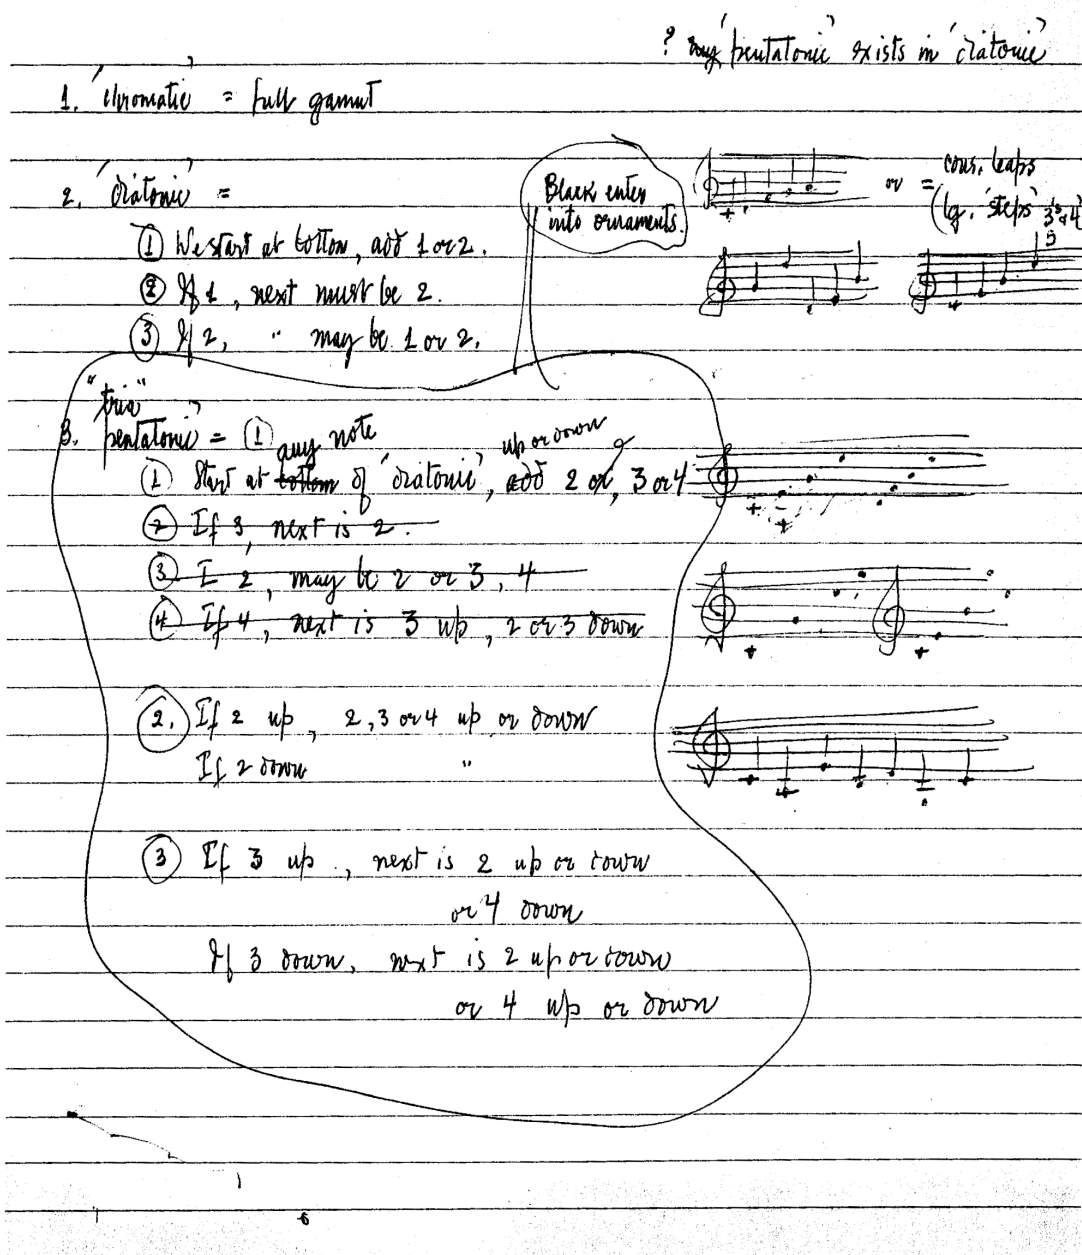 ? any 'pentatonic' exists in 'diatonic'
1. 'chromatic' = full gamut
2. 'diatonic' =
① We start at bottom, add 1 or 2.
② If 1, next must be 2.
③ If 2, " may be 1 or 2.
Black enter
into ornaments.
or = cons. leaps
(lg. 'steps' 3's & 4's)
"tria"
3. pentatonic' = ①
any note
up or down
① Start at bottom of 'diatonic', add 2 or, 3 or 4
② If 3, next is 2.
③ I 2, may be 2 or 3, 4
④ If 4, next is 3 up, 2 or 3 down
2. If 2 up, 2, 3 or 4 up or down
If 2 down "
③ If 3 up, next is 2 up or down
or 4 down
If 3 down, next is 2 up or down
or 4 up or down
6